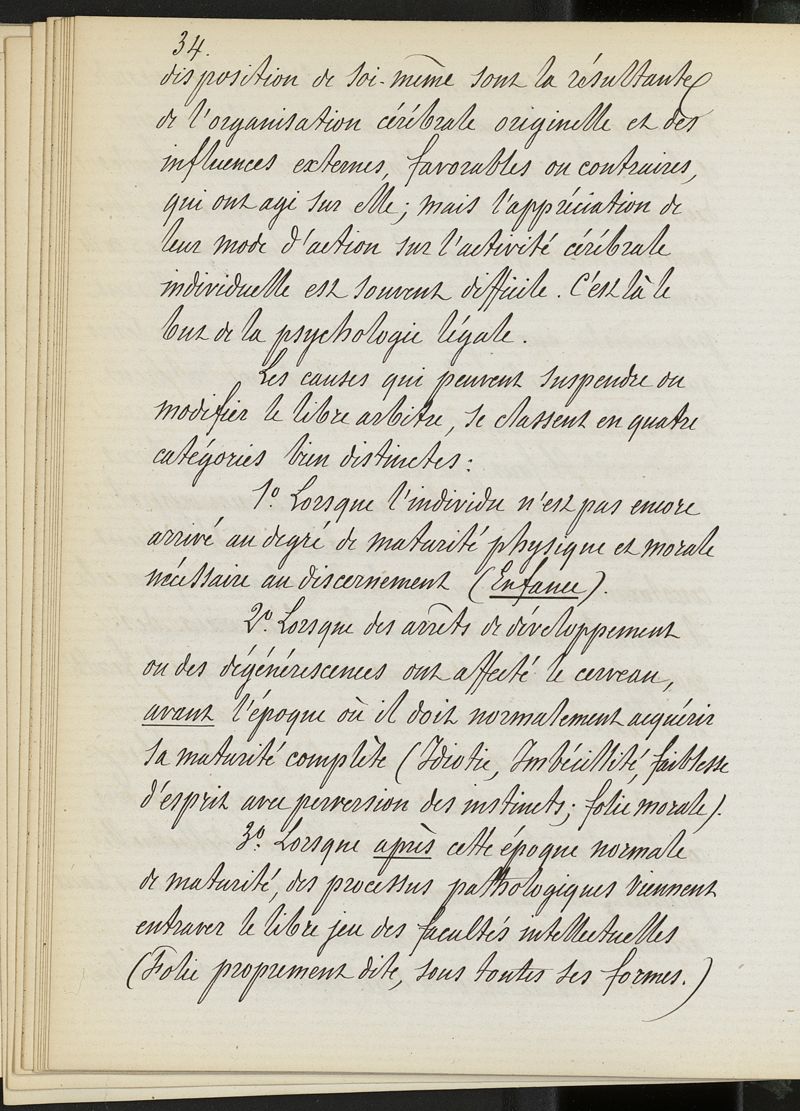 34.
disposition de soi-même sont la résultante
de l'organisation cérébrale originelle et des
influences externes, favorables ou contraires,
qui ont agi sur elle; mais l'appréciation de
leur mode d'action sur l'activité cérébrale
individuelle est souvent difficile. C'est là le
but de la psychologie légale.
Les causes qui peuvent suspendre ou
modifier le libre arbitre, se classent en quatre
catégories bien distinctes:
1º. Lorsque l'individu n'est pas encore
arrivé au degré de maturité physique et morale
nécessaire au discernement (Enfance).
2º. Lorsque des arrêts de développement
ou des dégénérescences ont affecté le cerveau,
avant l'époque où il doit normalement acquérir
sa maturité complète (Idiotie, Imbécillité, faiblesse
d'esprit avec perversion des instincts; folie morale).
3º. Lorsque après cette époque normale
de maturité, des processus pathologiques viennent
entraver le libre jeu des facultés intellectuelles
(Folie proprement dite, sous toutes ses formes.)